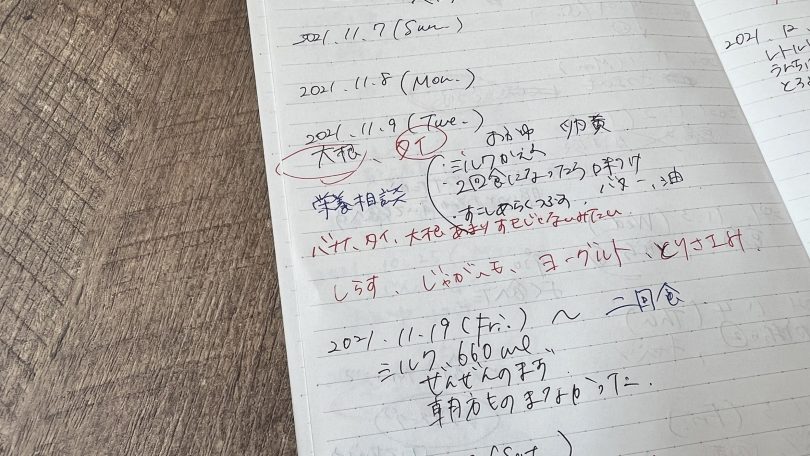 2021.11.7 (Sun.)
2021.11.8 (Mon.)
2021.11.9 (Tue.)
大根、タイ
おかゆ 卵黄
栄養相談
・ミルクかえろ
・2回食になったら 味つけ
バター、油
・すこしめらくつぶす
バナナ、タイ、大根 あまりすきじゃないみたい
しらす、じゃがいも、ヨーグルト、とりささみ
2021.11.19 (Fri.) 〜 二回食
ミルク 660ml
ぜんぜんのまず
朝方ものまなかった.
(Sat.
2021.12
レトルト